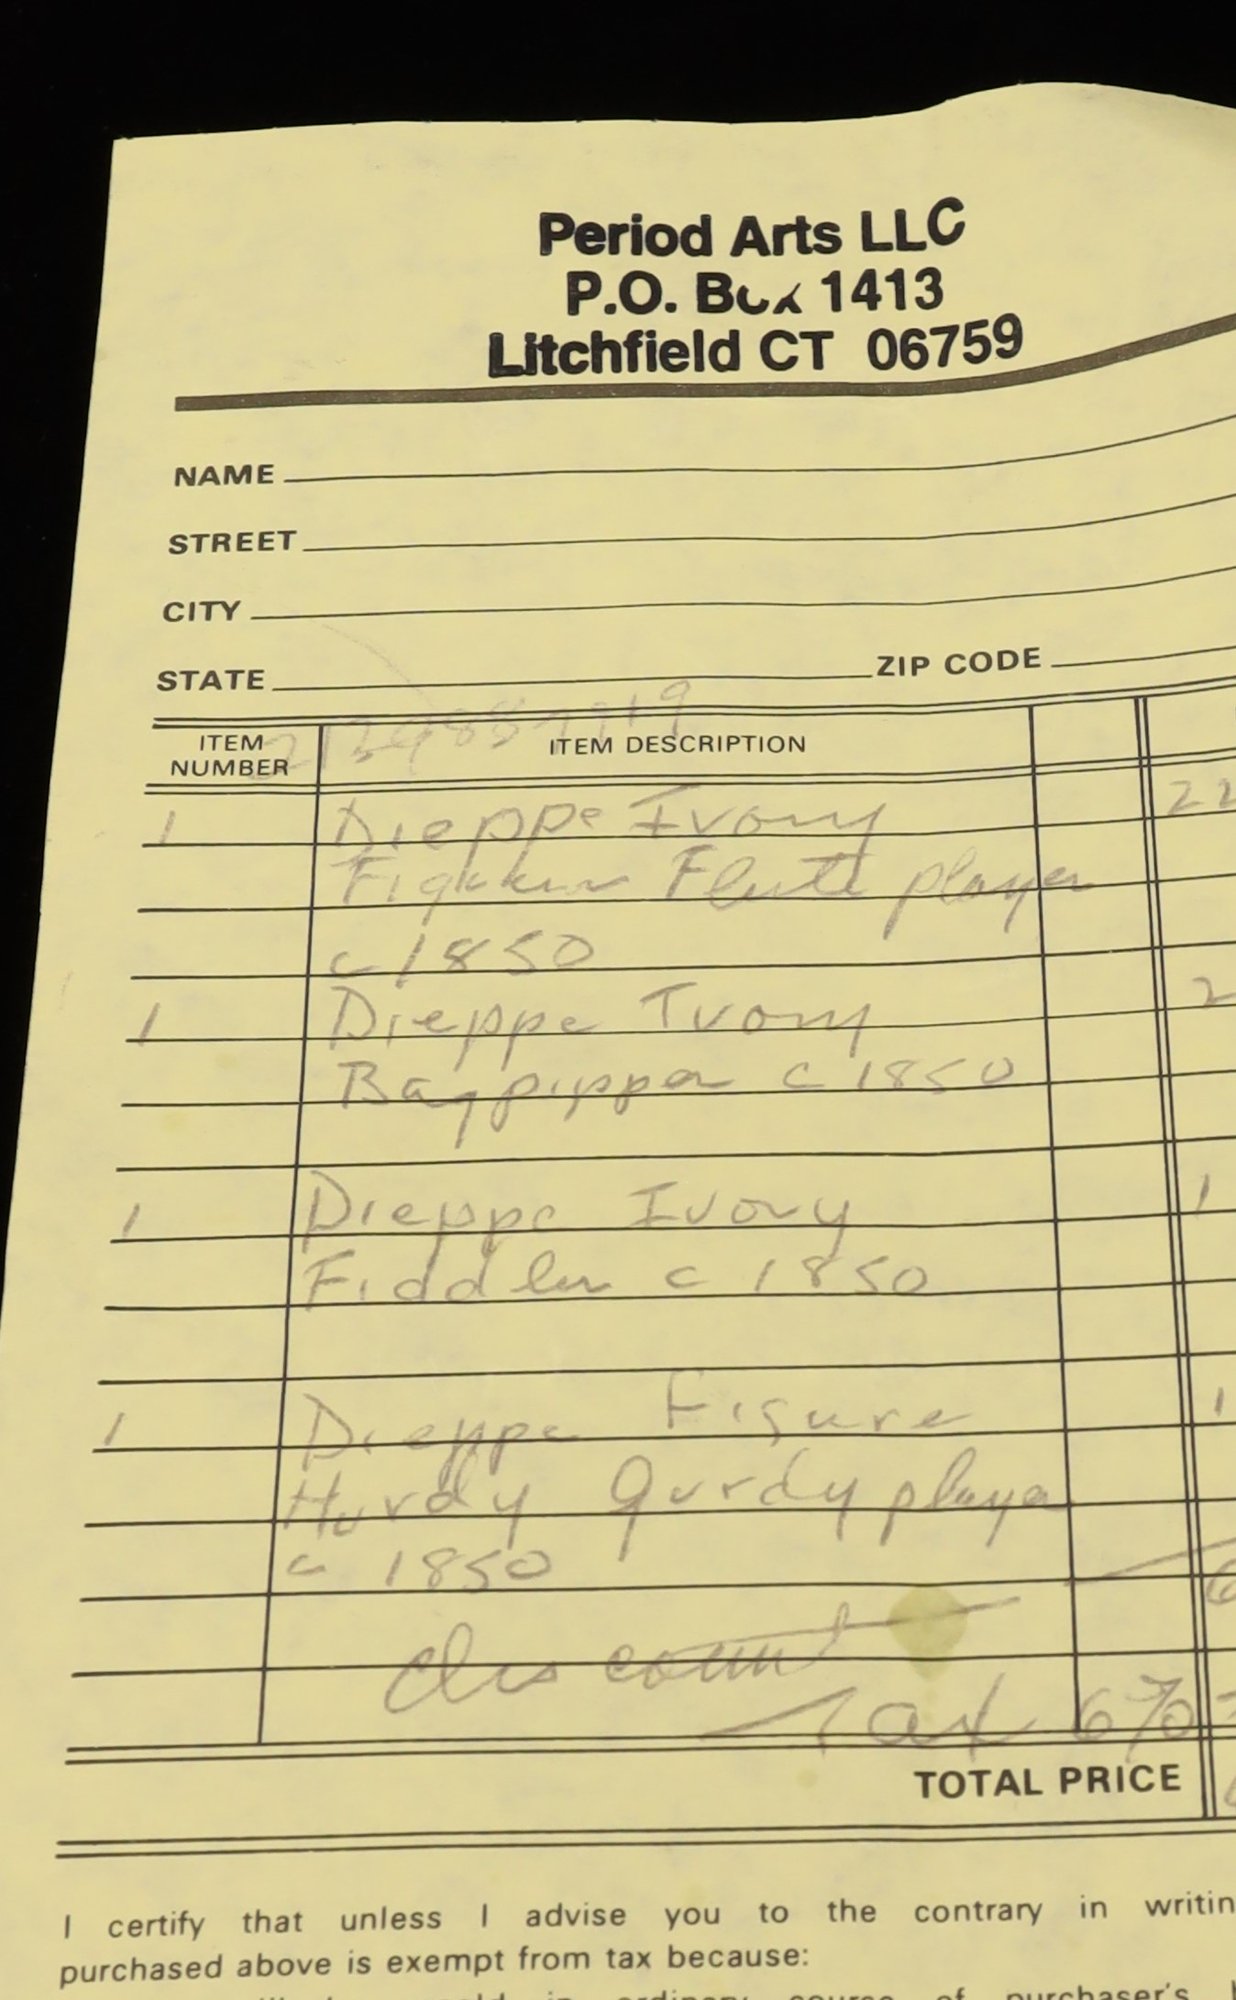 Period Arts LLC
P.O. Box 1413
Litchfield CT 06759
NAME
STREET
CITY
STATE ZIP CODE
ITEM NUMBER ITEM DESCRIPTION
1 Dieppe Ivory 22
Flute player
c 1850
1 Dieppe Ivory 2
Bagpipper c 1850
1 Dieppe Ivory 1
Fiddler c 1850
1 Dieppe Figure 1
Hurdy Gurdy player
c 1850
discount
Tax 6%
TOTAL PRICE
I certify that unless I advise you to the contrary in writin
purchased above is exempt from tax because:
ordinary course of purchaser's